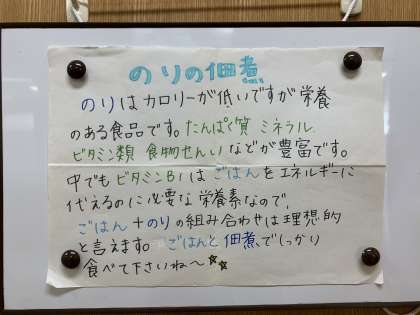 のりの佃煮
のりはカロリーが低いですが栄養
のある食品です。たんぱく質 ミネラル
ビタミン類 食物せんい などが豊富です。
中でもビタミンB1は ごはんをエネルギーに
代えるのに必要な栄養素なので、
ごはん+のりの組み合わせは理想的
と言えます。 ごはんと 佃煮でしっかり
食べて下さいね〜☆☆